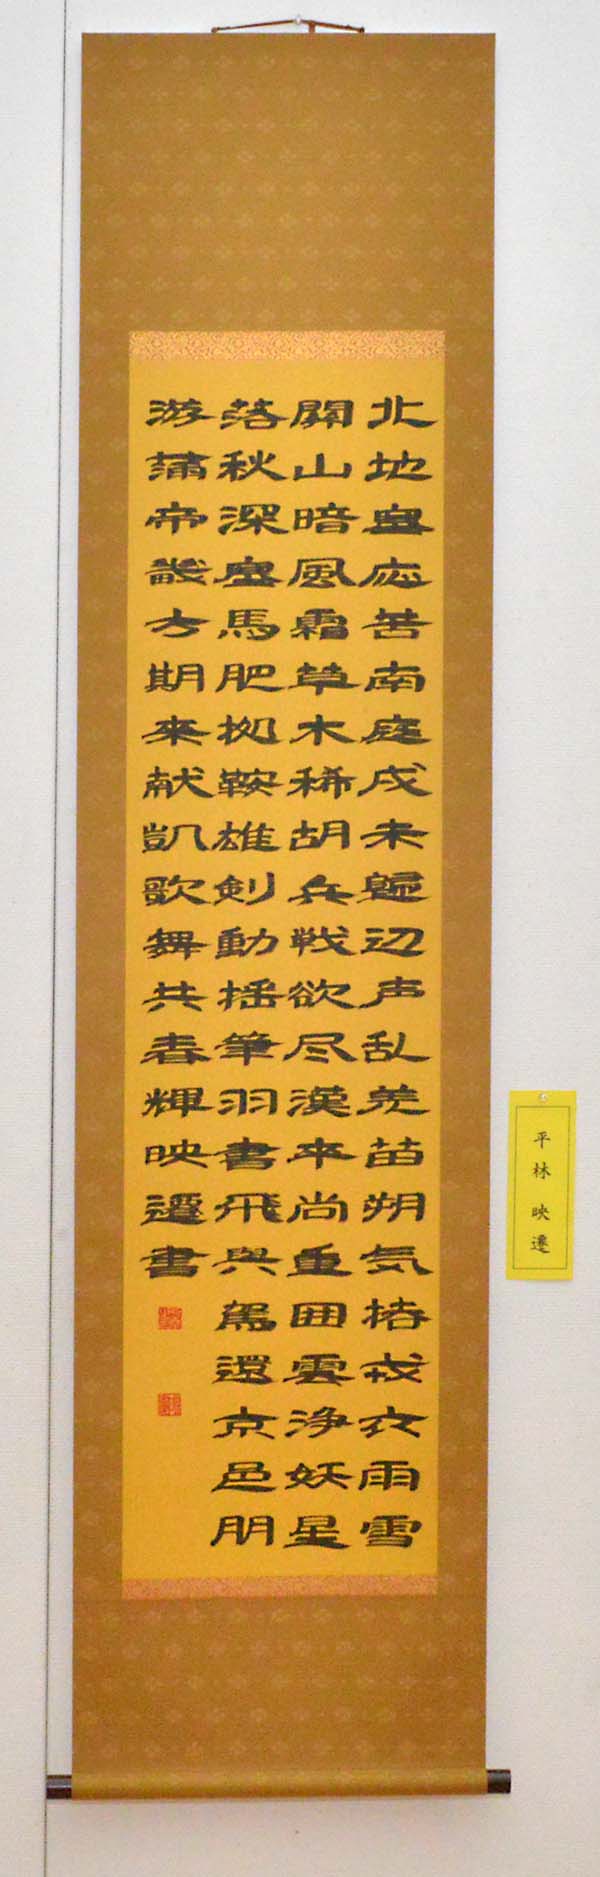 北地寒応苦南庭戍未歸辺声乱羌笛朔気捲戎衣雨雪
関山暗風霜草木稀胡兵戦欲尽漢卒尚重囲雲浄妖星
落秋深塞馬肥拠鞍雄剣動揺筆羽書飛輿駕還京邑朋
游満帝畿方期来献凱歌舞共春輝映遷書
平林映遷